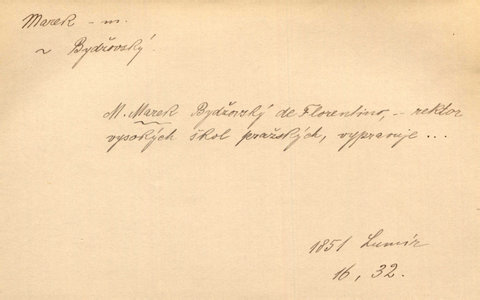 Marek – m.
~ Bydžovský.
M. Marek Bydžovský de Florentino, – rektor
vysokých škol pražských, vypravuje ...
1851 Lumír
16, 32.